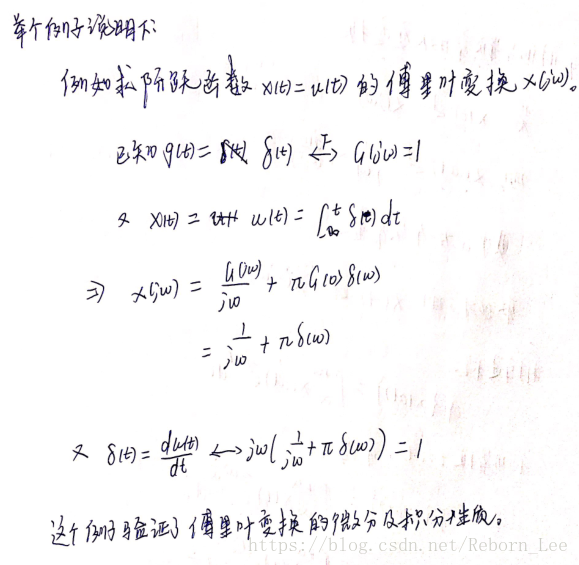 举个例子说明下:
例如求阶跃函数 x(t)=u(t) 的傅里叶变换 X(jω)。
已知 g(t)= δ(t) ⟷F G(jω)=1
又 x(t)= u(t)= ∫_{-∞}^{t} δ(τ)dτ
⇒ X(jω) = G(jω)/jω + πG(0)δ(ω)
= 1/jω + πδ(ω)
又 δ(t)= du(t)/dt ⟷ jω(1/jω + πδ(ω)) = 1
这个例子验证了傅里叶变换的微分及积分性质。
https://blog.csdn.net/Reborn_Lee